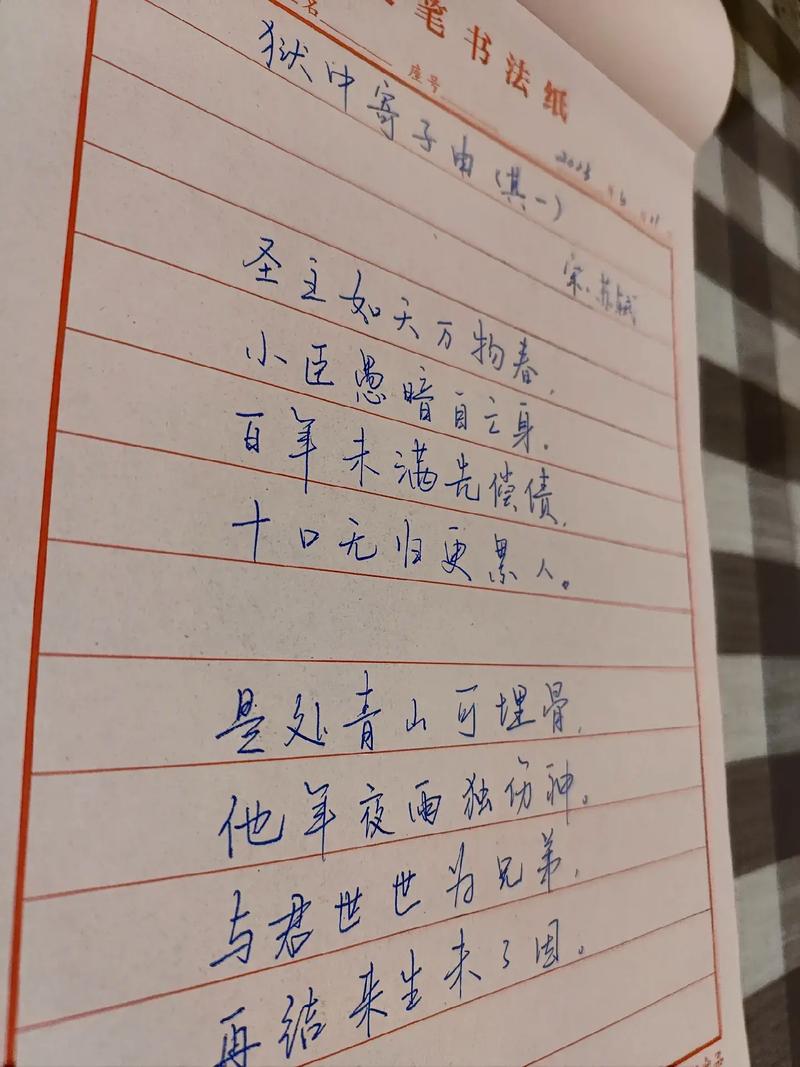 笔书法纸
名
座号
狱中寄子由(其一)
2023 6 11
宋.苏轼
圣主如天万物春,
小臣愚暗自亡身.
百年未满先偿债,
十口无归更累人。
是处青山可埋骨,
他年夜雨独伤神。
与君世世为兄弟,
再结来生未了因。